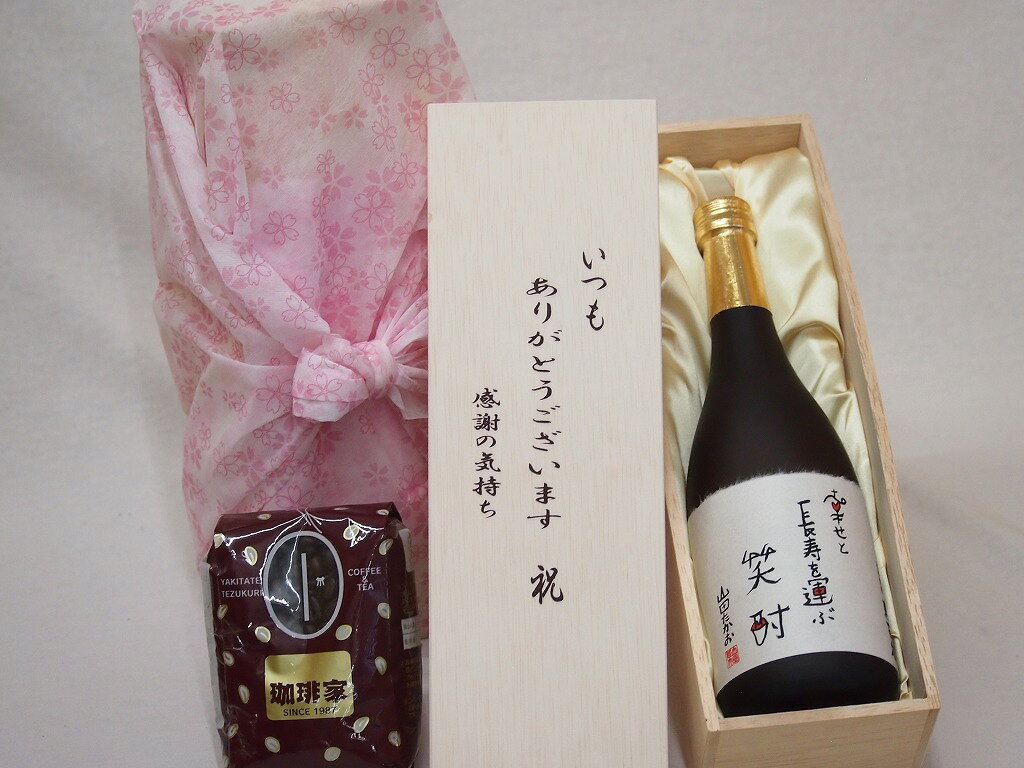 いつも
ありがとうございます 祝
感謝の気持ち
幸せと
長寿を運ぶ
笑酎
山田たかお
YAKITATE
TEZUKURI
COFFEE
&
TEA
珈琲家
SINCE 1987